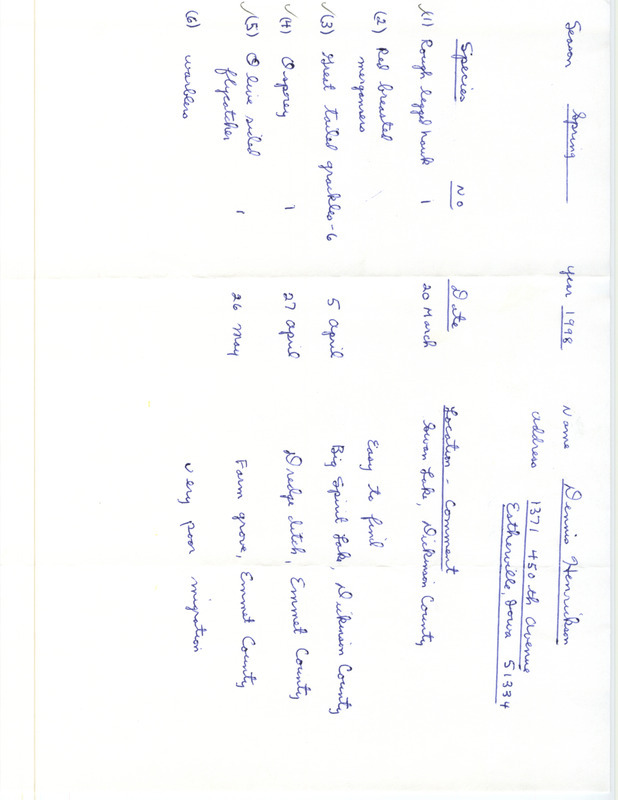 Season Spring Year 1998 Name Dennis Henrikson
address 1371 450th Avenue
Estherville, Iowa 51334
Species No Date Location - Comment
✓(1) Rough legged hawk 1 20 March Swan Lake, Dickinson County
(2) Red breasted
mergansers Easy to find
✓(3) Great tailed grackles - 6 5 April Big Spirit Lake, Dickinson County
✓(4) Osprey 1 27 April Dredge ditch, Emmet County
✓(5) Olive sided
flycatcher 1 26 May Farm grove, Emmet County
(6) warblers very poor migration